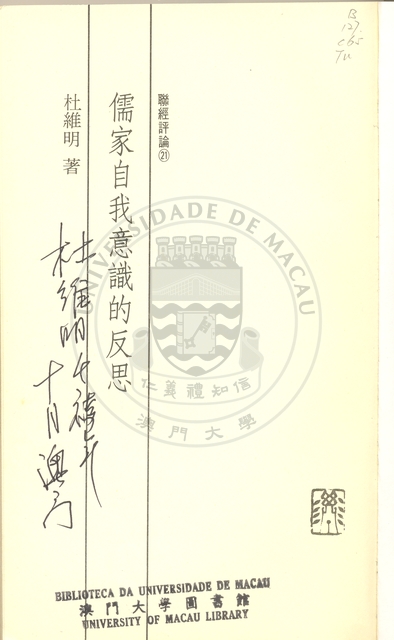 B
127
C65
Tu
聯經評論㉑
儒家自我意識的反思
杜維明 著
杜維明
千禧年
十月澳门
UNIVERSIDADE DE MACAU
仁義禮知信
澳門大學
BIBLIOTECA DA UNIVERSIDADE DE MACAU
澳門大學圖書館
UNIVERSITY OF MACAU LIBRARY